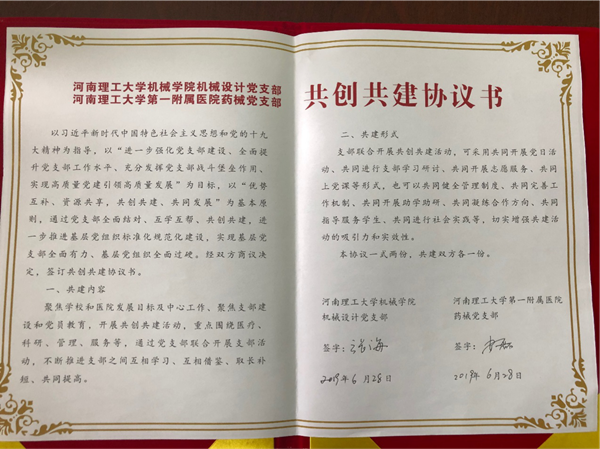 河南理工大学机械学院机械设计党支部
河南理工大学第一附属医院药械党支部
共创共建协议书
以习近平新时代中国特色社会主义思想和党的十九
大精神为指导，以“进一步强化党支部建设、全面提
升党支部工作水平、充分发挥党支部战斗堡垒作用、
实现高质量党建引领高质量发展”为目标，以“优势
互补、资源共享，共创共建、共同发展”为基本原
则，通过党支部全面结对、互学互帮、共创共建，进
一步推进基层党组织标准化规范化建设，实现基层党
支部全面有力、基层党组织全面过硬。经双方商议决
定，签订共创共建协议书。
一、共建内容
聚焦学校和医院发展目标及中心工作、聚焦支部建
设和党员教育，开展共创共建活动，重点围绕医疗、
科研、管理、服务等，通过党支部联合开展支部活
动，不断推进支部之间互相学习、互相借鉴、取长补
短、共同提高。
二、共建形式
支部联合开展共创共建活动，可采用共同开展党日活
动、共同进行支部学习研讨、共同开展志愿服务、共同
上党课等形式，也可以共同健全管理制度、共同完善工
作机制、共同开展助学助研、共同凝练合作方向、共同
指导服务学生、共同进行社会实践等，切实增强共建活
动的吸引力和实效性。
本协议一式两份，共建双方各一份。
河南理工大学机械学院
机械设计党支部
签字：张海
2019年6月28日
河南理工大学第一附属医院
药械党支部
签字：
2019年6月28日